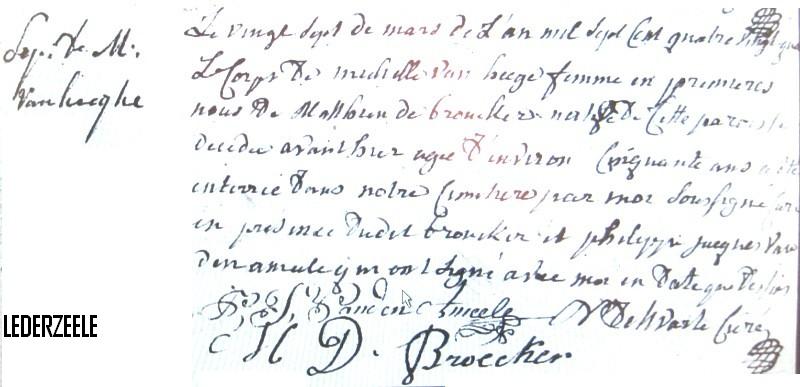 Sep.re de M.
Vanheeghe
Le vingt sept de mars de L'an mil sept cent quatre vingt
Le Corps de michelle van heege femme en premieres
nous de Matthieu de brouckers de Cette paroisse
decedee avant hier agée d'environ Cinquante ans a été
enterrée dans notre Cimetiere par moi Soussigné Curé
en presence dudit broucker et philippe jacques Van
den ameele qui ont signé avec moi en date que dessus
Vanden Ameele Curé
M D. Broecker
LEDERZEELE